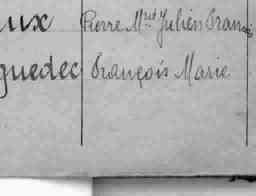 ux Pierre Mel Julien Francois
guedec François Marie